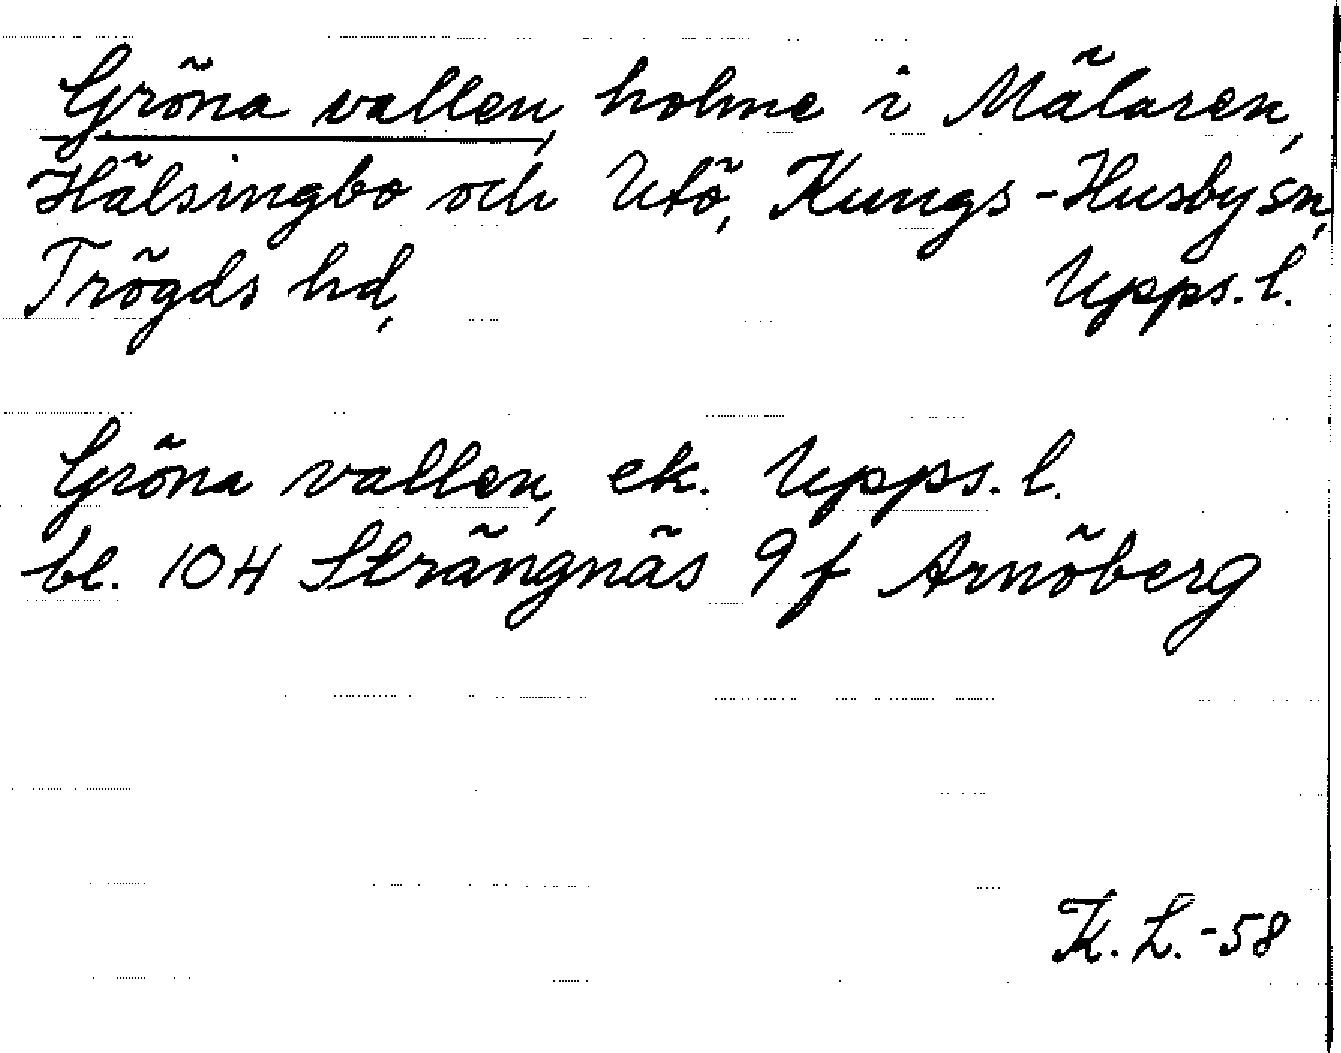 Gröna vallen, holme i Mälaren,
Hälsingbo och Utö, Kungs-Husby sn,
Trögds hd, Upps. l.
Gröna vallen, ek. Upps. l.
bl. 10H Strängnäs 9f Arnöberg
K. L. -58